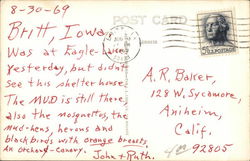 8-30-69
POST CARD
Britt, Iowa
Was at Eagle Lake
yesterday, but didn't
see this shelter house.
The MUD is still there,
also the mosquitos, the
mud-hens, herons and
black birds with orange breasts.
An orchard-canary.
John & Ruth.
A.R. Baker,
128 W. Sycamore,
Aniheim,
Calif.
92805
U.S. POSTAGE